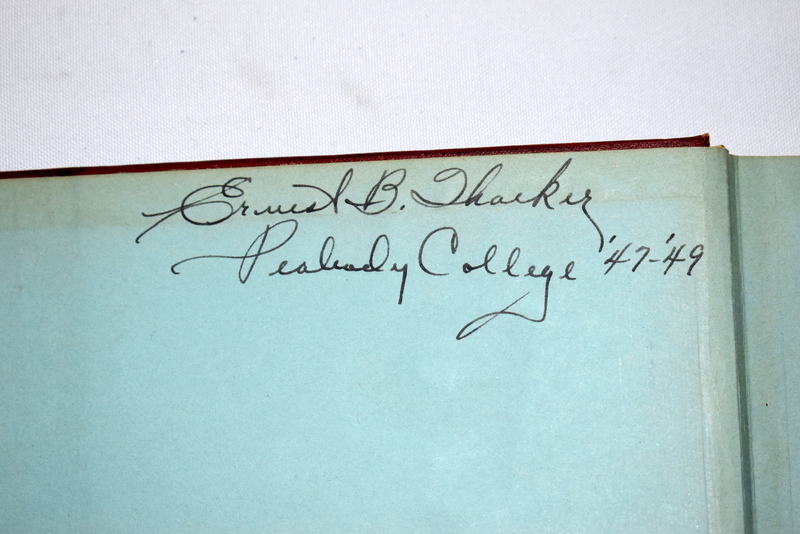 Ernest B. Thacker
Peabody College '47-'49